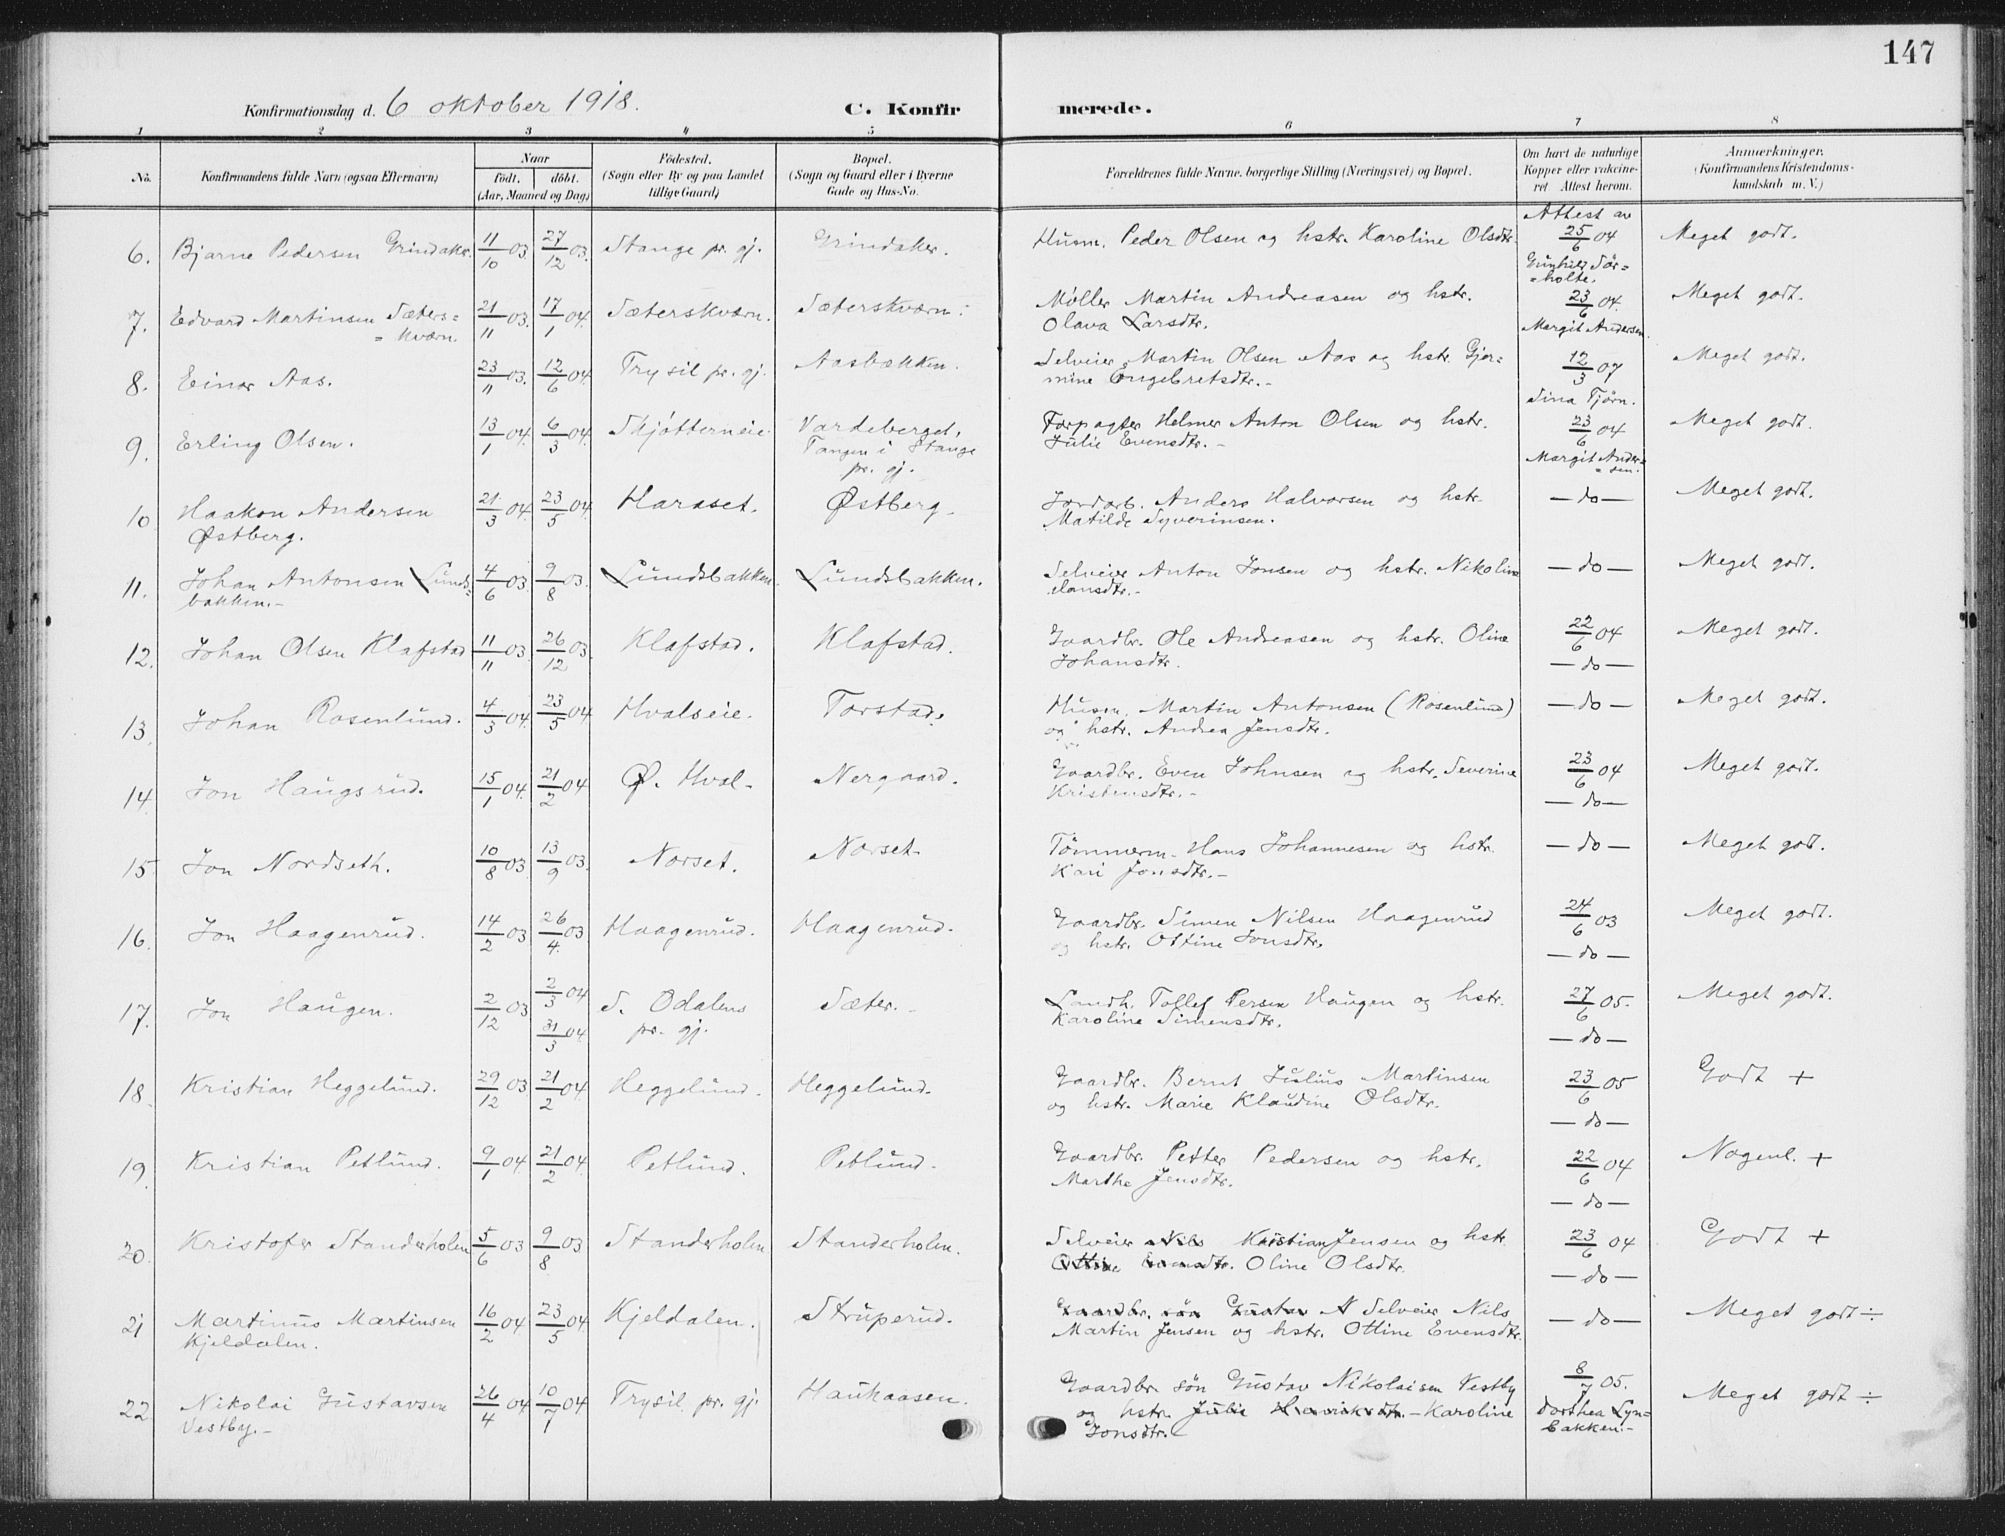 147
Konfirmationsdag d. 6 oktober 1918. C. Konfirmerede.
1 2 3 4 5 6 7 8
No. Konfirmandens fulde Navn (ogsaa Efternavn) Naar födt. döbt. (Aar, Maaned og Dag) Födested. (Sogn eller By og paa Landet tillige Gaard) Bopæl. (Sogn og Gaard eller i Byerne Gade og Hus-No. Forældrenes fulde Navne, borgerlige Stilling (Næringsvei) og Bopæl. Om havt de naturlige Kopper eller vakcineret. Attest herom. Anmærkninger. (Konfirmandens Kristendomskundskab m. V.)
6. Bjarne Pedersen Grindaker. 11/10 03. 27/12 03. Stange pr. gj. Grindaker. Husm. Peder Olsen og hstr. Karoline Olsdtr. Attest av 25/6 04 Meget godt.
Gunhild Sör=
=holte.
7. Edvard Martinsen Sæters=
=kværn. 21/11 03. 17/1 04. Sæterskværn. Sæterskværn. Møller Martin Andreasen og hstr.
Olava Larsdtr. 23/6 04. Margit Andersen Meget godt.
8. Einar Aas. 23/11 03. 12/6 04. Trysil pr. gj. Aasbækken. Selveier Martin Olsen Aas og hstr. Gjer-
mine Engebretsdtr.- 12/3 07 Sina Tjørn. Meget godt.
9. Erling Olsen. 13/1 04. 6/3 04. Skjötterneie Vardeberget,
Tangen i Stange
pr. gj. Forpagter Helmer Anton Olsen og hstr.
Julie Evensdtr.- 23/6 04 Margit Ander=
=sen. Meget godt.
10 Haakon Andersen
Østberg. 21/3 04. 23/5 04. Haraset. Østberg. Jordarb. Anders Halvorsen og hstr.
Matilde Syverinsen. — do — Meget godt.
11. Johan Antonsen Lunds=
bakken.- 4/6 03. 9/8 03. Lundsbakken. Lundsbakken. Selveier Anton Jonsen og hstr. Nikoline
Hansdtr.- — do — Meget godt.
12. Johan Olsen Klafstad 11/11 03. 26/12 03. Klafstad. Klafstad. Gaardbr. Ole Andreasen og hstr. Oline
Johansdtr. 22/6 04 — do — Meget godt.
13. Johan Rosenlund. 4/3 04. 23/5 04 Hvalseie. Torstad. Husm. Martin Antonsen (Rosenlund)
og hstr. Andrea Jensdtr. — do — Meget godt.
14. Jon Haugsrud. 15/1 04. 21/2 04 Ø. Hval. Nergaard. Gaardbr. Even Johnsen og hstr. Severine
Kristensdtr.- 23/6 04 — do — Meget godt.
15 Jon Nordseth. 10/8 03. 13/9 03. Norset. Norset. Tömmerm. Hans Johannesen og hstr.
Kari Jonsdtr.- — do — Meget godt.
16. Jon Haagenrud. 14/2 03 26/4 03 Haagenrud. Haagenrud. Gaardbr. Simen Nilsen Haagenrud
og hstr. Ottine Jonsdtr. 24/6 03 — do — Meget godt.
17. Jon Haugen. 2/12 03 2/3 04 31/3 04. S. Odalens
pr. gj. Sæter. Landh. Tollef Persen Haugen og hstr.
Karoline Simensdtr. 27/6 05. — do — Meget godt.
18. Kristian Heggelund. 29/12 03 21/2 04. Heggelund. Heggelund. Gaardbr. Bernt Julius Martinsen
og hstr. Marie Klaudine Olsdtr. 23/6 05 — do — Godt +
19. Kristian Petlund. 9/1 04. 21/2 04. Petlund. Petlund. Gaardbr. Petter Pedersen og hstr.
Marthe Jensdtr. 22/6 04 — do — Nogenl. +
20. Kristofer Standerholen 5/6 03 9/8 03 Standerholen Standerholen. Selveier Nils Kristian Jensen og hstr.
Ottine Evensdtr. Oline Olsdtr. 23/6 04 — do — Godt +
21 Martinus Martinsen
Kjeldalen. 16/2 04 23/5 04 Kjeldalen. Struperud. Gaardbr. sön Gustav N Selveier Nils
Martin Jensen og hstr. Ottine Evensdtr. — do — Meget godt ÷
22 Nikolai Gustavsen
Vestby.- 26/4 04 10/7 04 Trysil pr. gj. Haukaasen. Gaardbr. sön Gustav Nikolaisen Vestby
og hstr. Julie Henriksdtr. - Karoline
Jonsdtr. 8/7 05. Dorthea Lyn=
bakken.- Meget godt ÷